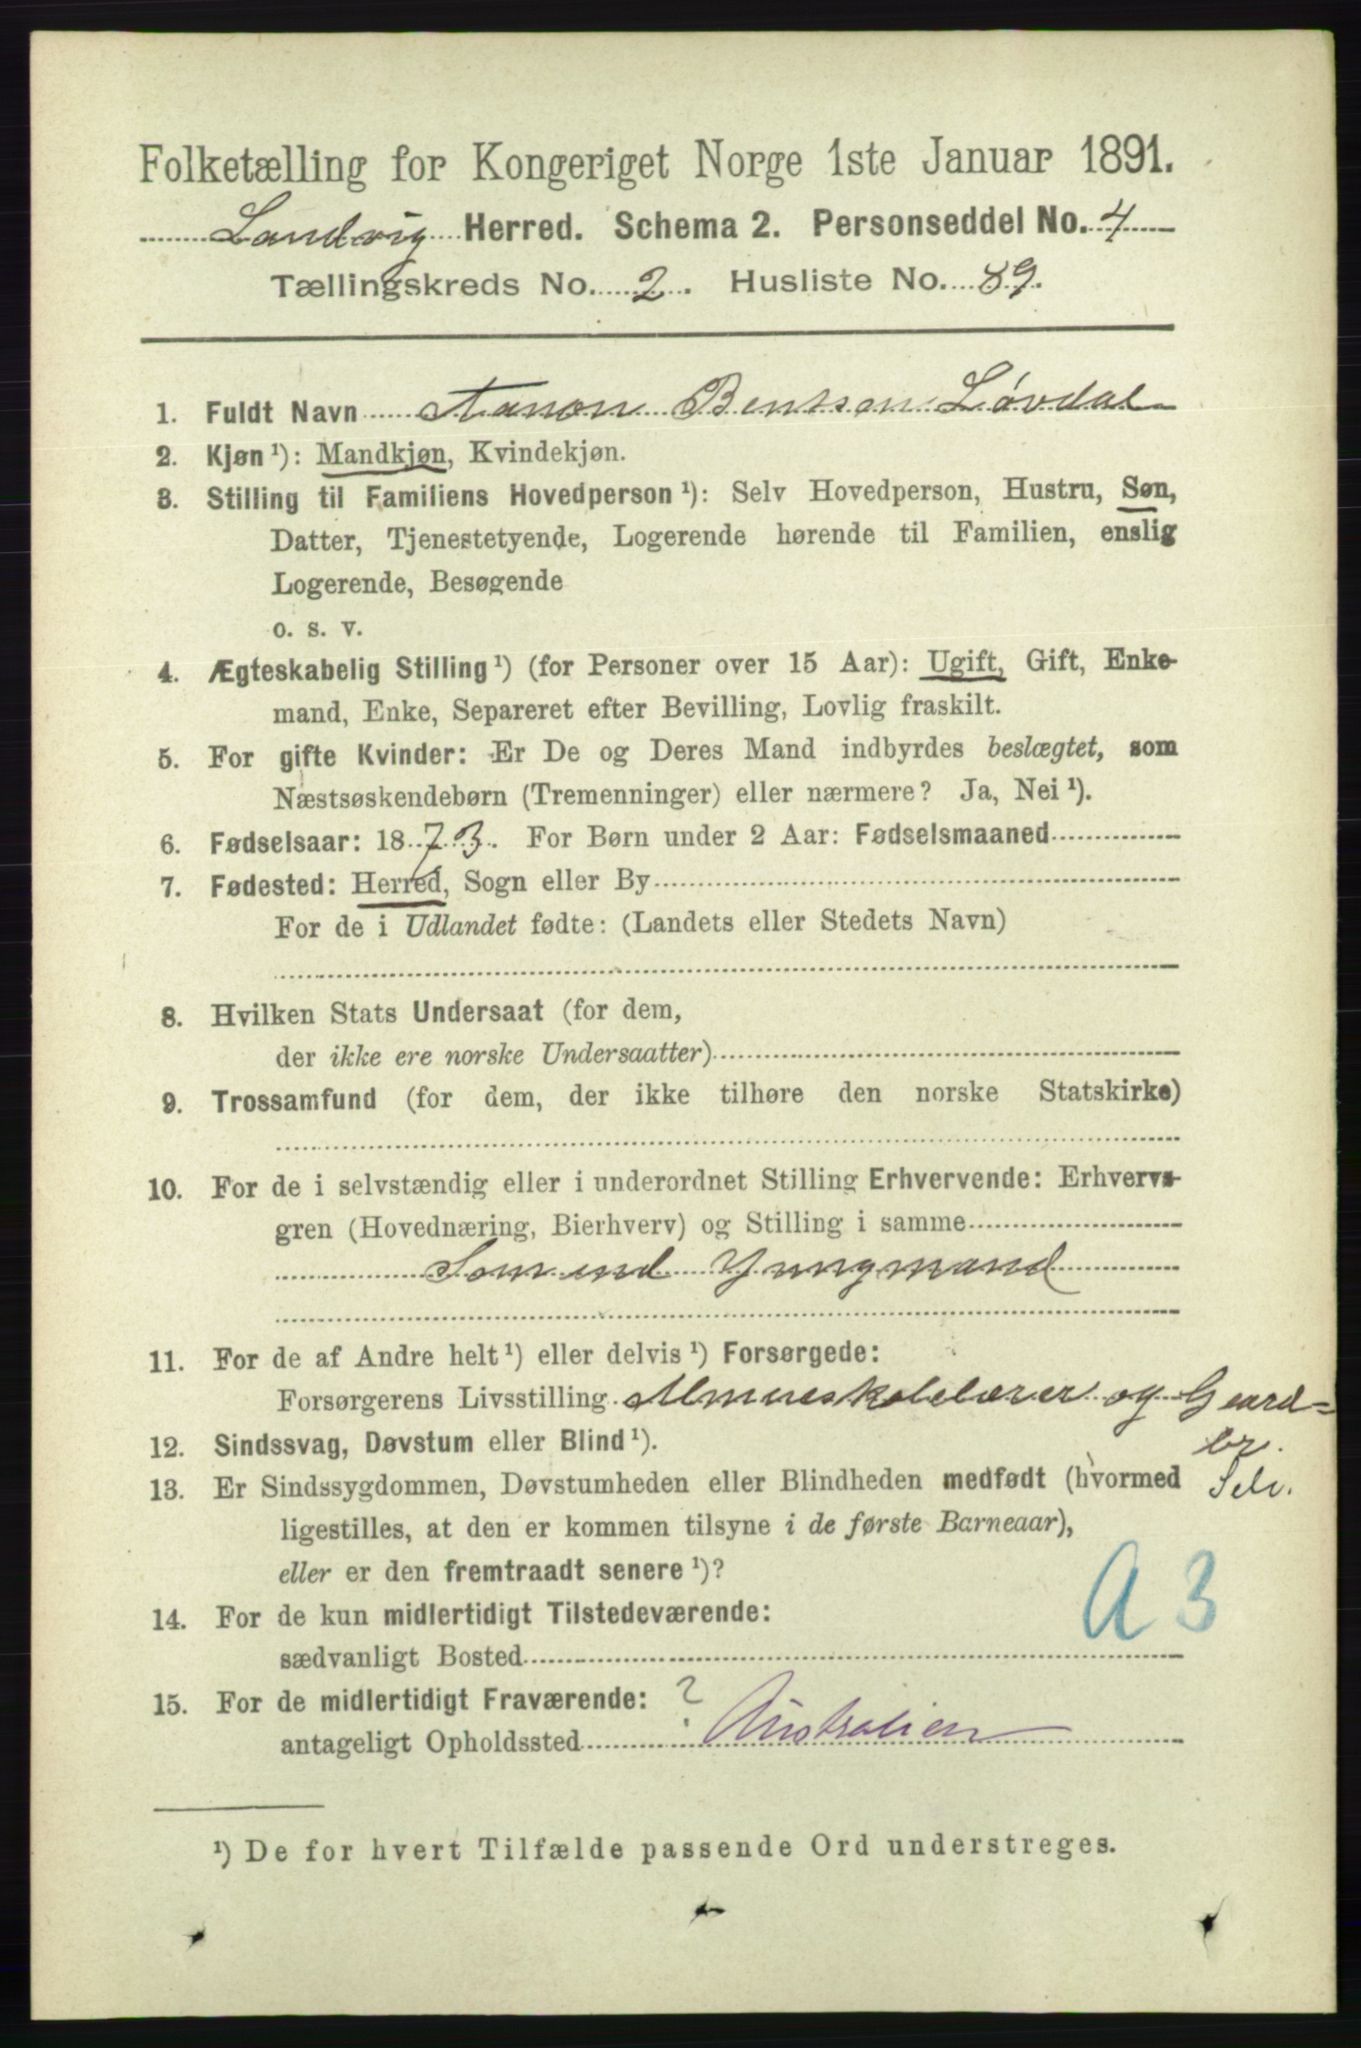 Folketælling for Kongeriget Norge 1ste Januar 1891.
Landvig Herred. Schema 2. Personseddel No. 4
Tællingskreds No. 2. Husliste No. 89.
1. Fuldt Navn Aanon Bentsen Løvdal
2. Kjøn ¹): Mandkjøn, Kvindekjøn.
3. Stilling til Familiens Hovedperson ¹): Selv Hovedperson, Hustru, Søn,
Datter, Tjenestetyende, Logerende hørende til Familien, enslig
Logerende, Besøgende
o. s. v.
4. Ægteskabelig Stilling ¹) (for Personer over 15 Aar): Ugift, Gift, Enke-
mand, Enke, Separeret efter Bevilling, Lovlig fraskilt.
5. For gifte Kvinder: Er De og Deres Mand indbyrdes beslægtet, som
Næstsøskendebørn (Tremenninger) eller nærmere? Ja, Nei ¹).
6. Fødselsaar: 1873. For Børn under 2 Aar: Fødselsmaaned
7. Fødested: Herred, Sogn eller By
For de i Udlandet fødte: (Landets eller Stedets Navn)
8. Hvilken Stats Undersaat (for dem,
der ikke ere norske Undersaatter)
9. Trossamfund (for dem, der ikke tilhøre den norske Statskirke)
10. For de i selvstændig eller i underordnet Stilling Erhvervende: Erhvervs-
gren (Hovednæring, Bierhverv) og Stilling i samme
Yungmand
11. For de af Andre helt ¹) eller delvis ¹) Forsørgede:
Forsørgerens Livsstilling Almueskolelærer og Gaard=
br.
12. Sindssvag, Døvstum eller Blind ¹).
13. Er Sindssygdommen, Døvstumheden eller Blindheden medfødt (hvormed Selv.
ligestilles, at den er kommen tilsyne i de første Barneaar),
eller er den fremtraadt senere ¹)?
A 3
14. For de kun midlertidigt Tilstedeværende:
sædvanligt Bosted
15. For de midlertidigt Fraværende: ?
antageligt Opholdssted Australien
¹) De for hvert Tilfælde passende Ord understreges.